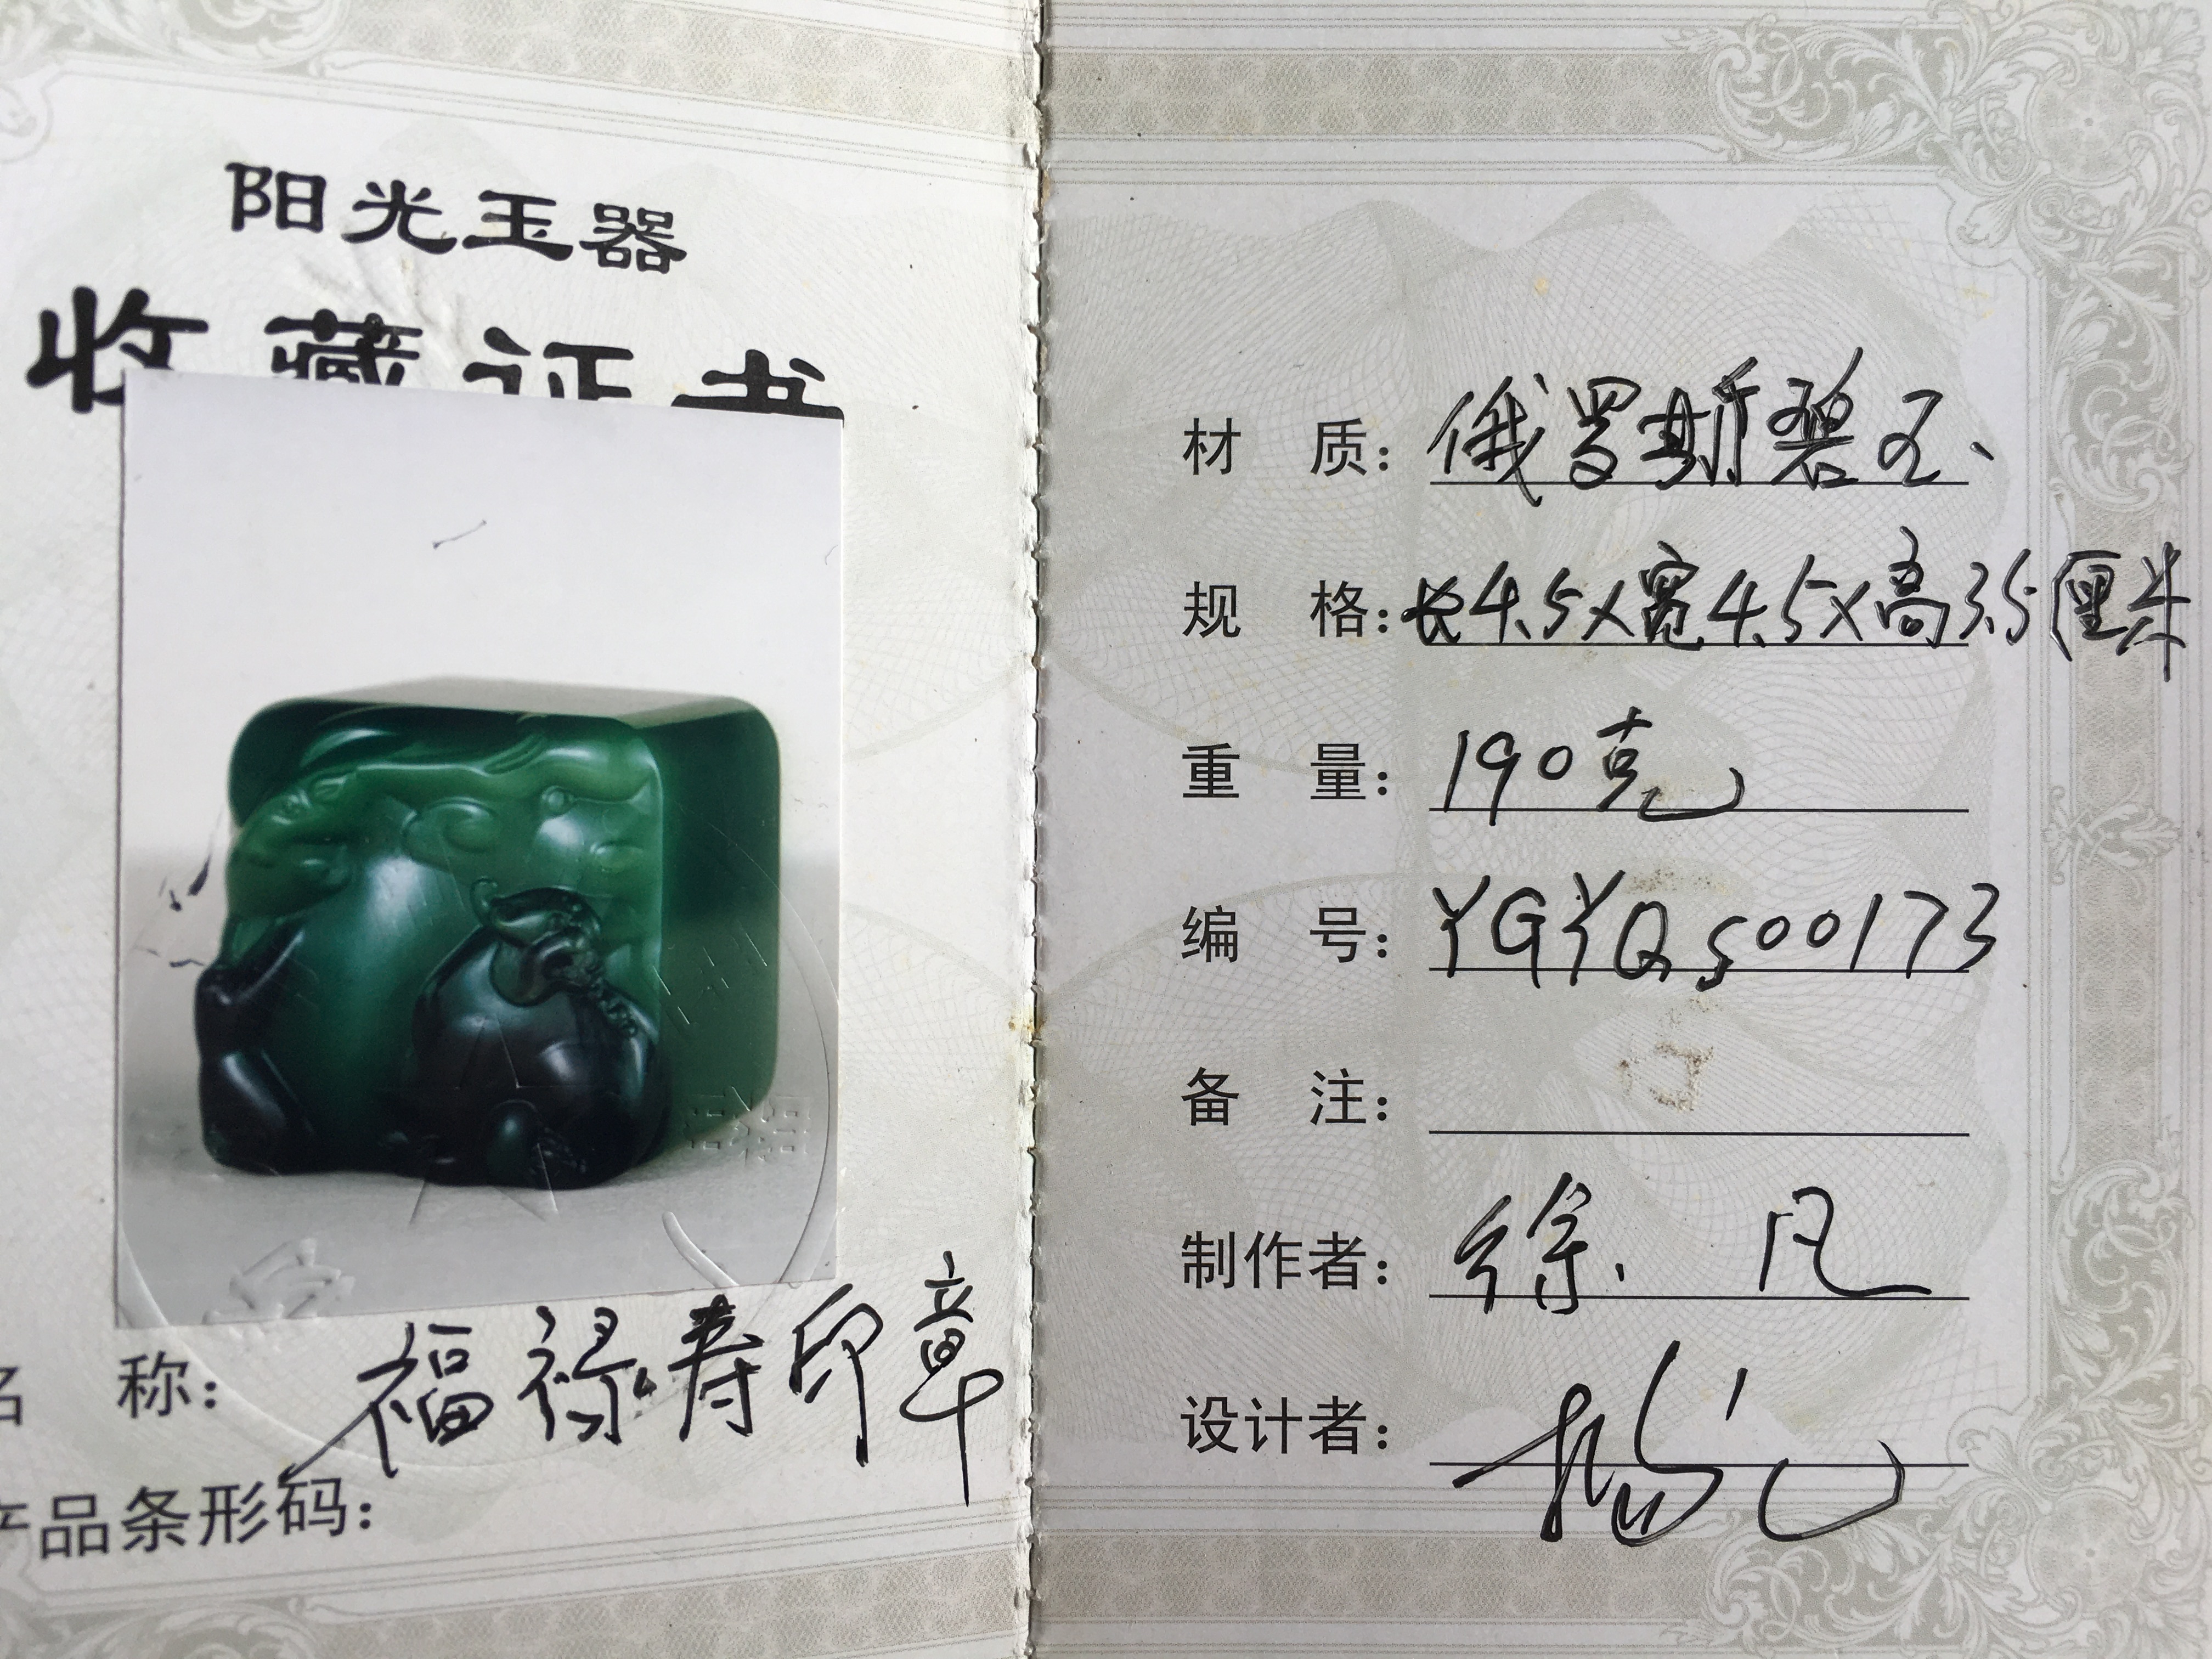 阳光玉器
收藏证书
名 称：福禄寿印章
产品条形码：
材 质：俄罗斯碧玉
规 格：长4.5×宽4.5×高3.5厘米
重 量：190克
编 号：YGYQS00173
备 注：
制作者：徐凡
设计者：